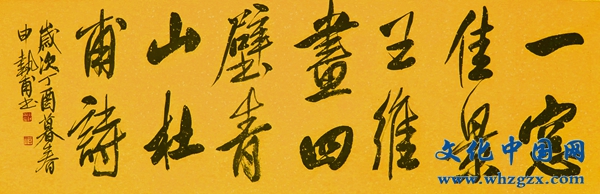 一窓
佳景
王維
畫四
壁青
山杜
甫詩
歲次丁酉暮春
申執甫書
文化中国网
www.whzgzx.com